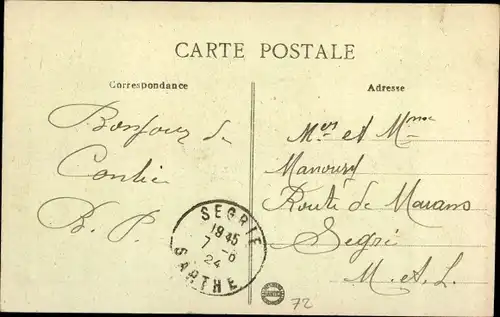 CARTE POSTALE
Correspondance
Adresse
Bonjour de
Conlie
B. P.
Mrs et Mme
Manoury
Route de Marans
Segré
M. et L.
SEGRIE
1945
7 -8
24
SARTHE
72